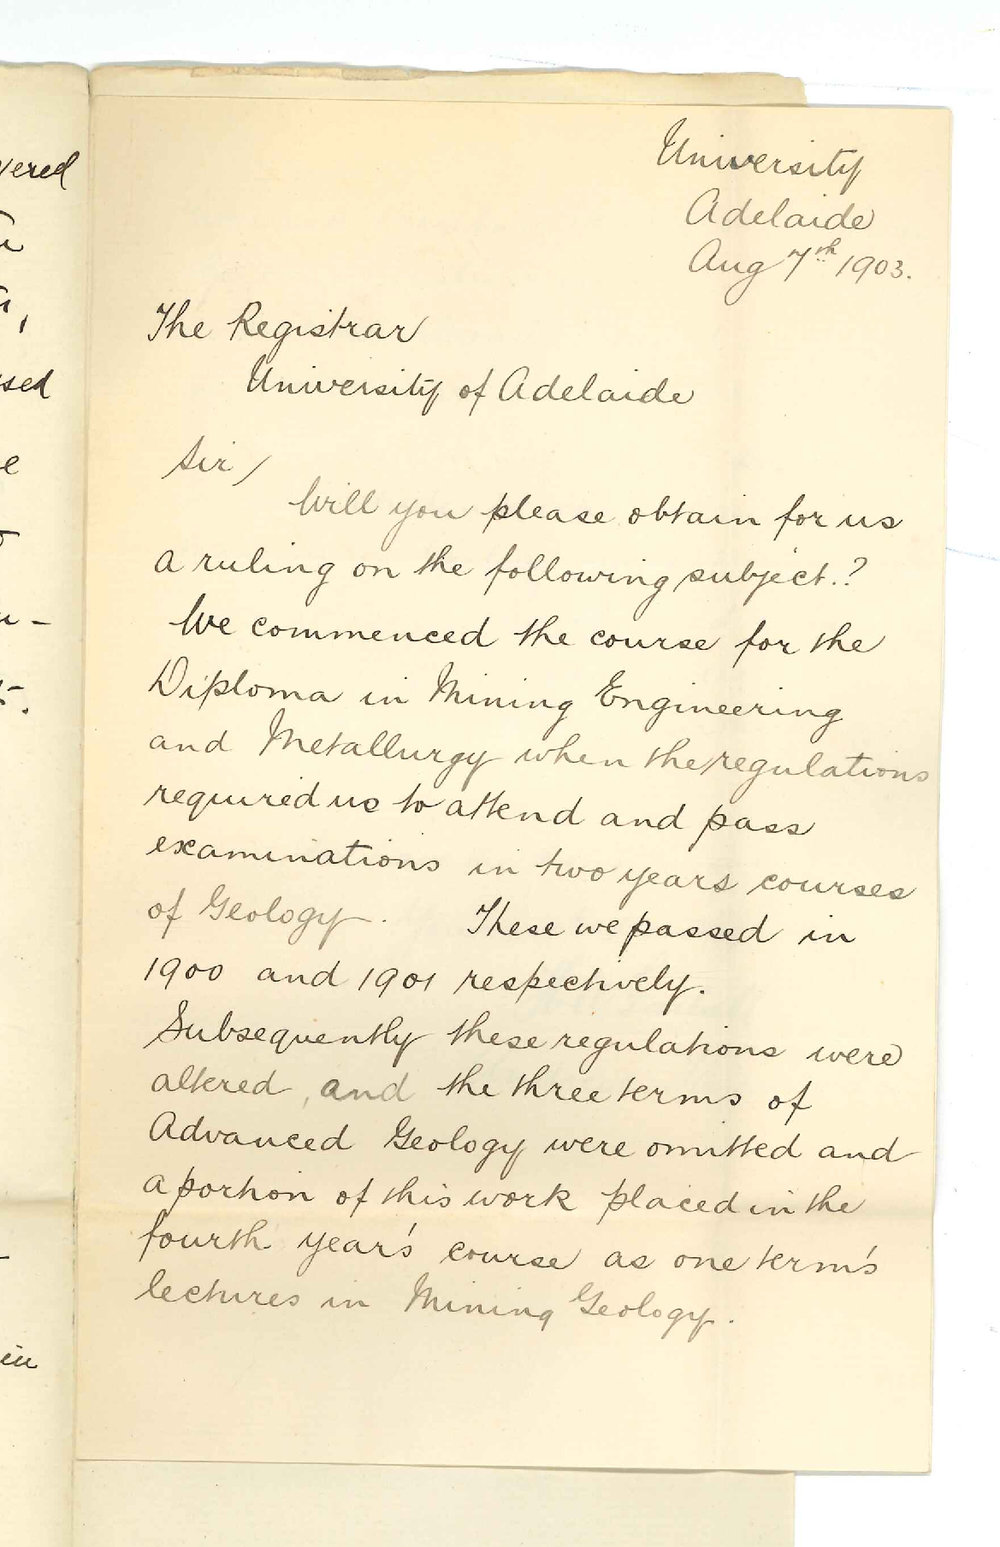 University
Adelaide
Aug 7th 1903.
The Registrar
University of Adelaide
Sir/
Will you please obtain for us
a ruling on the following subject.?
We commenced the course for the
Diploma in Mining Engineering
and Metallurgy when the regulations
required us to attend and pass
examinations in two years courses
of Geology. These we passed in
1900 and 1901 respectively.
Subsequently these regulations were
altered, and the three terms of
Advanced Geology were omitted and
a portion of this work placed in the
fourth year's course as one term's
lectures in Mining Geology.